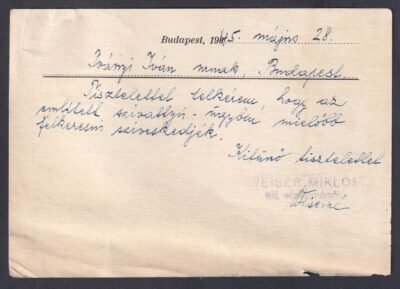 Budapest, 1945. május 28.
Iványi Iván urnak, Budapest
Tisztelettel felkérem, hogy az
említett szivattyú-ügyben mielőbb
felkeresni sziveskedjék.
Kitünő tisztelettel
WEISER MIKLÓS